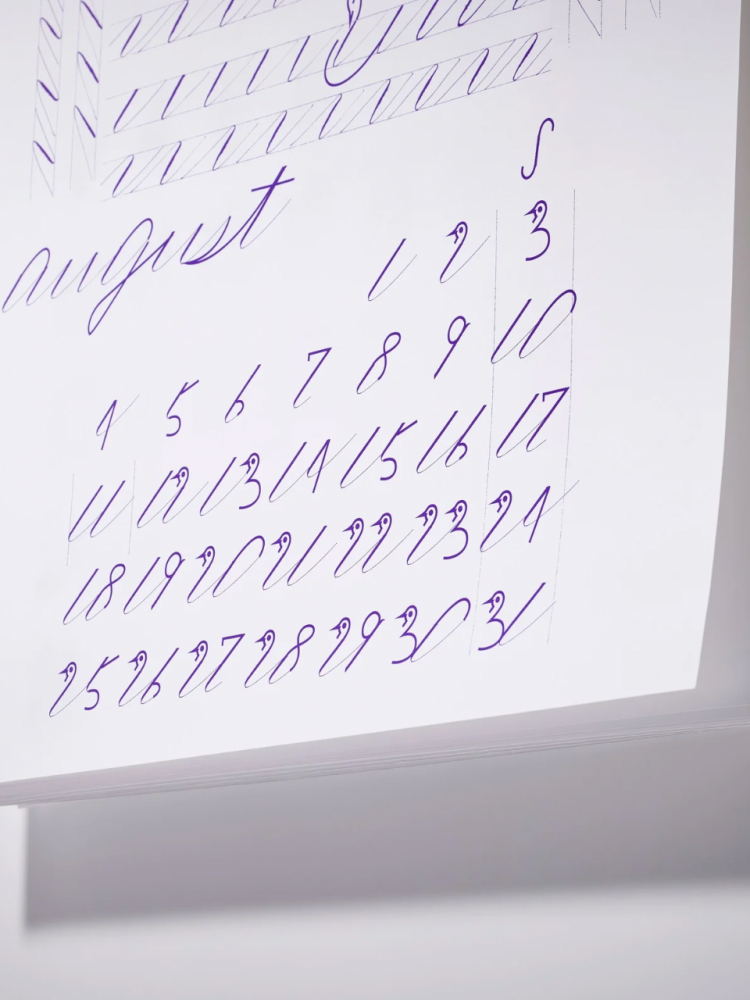 S
august
1 2 3
4 5 6 7 8 9 10
11 12 13 14 15 16 17
18 19 20 21 22 23 24
25 26 27 28 29 30 31